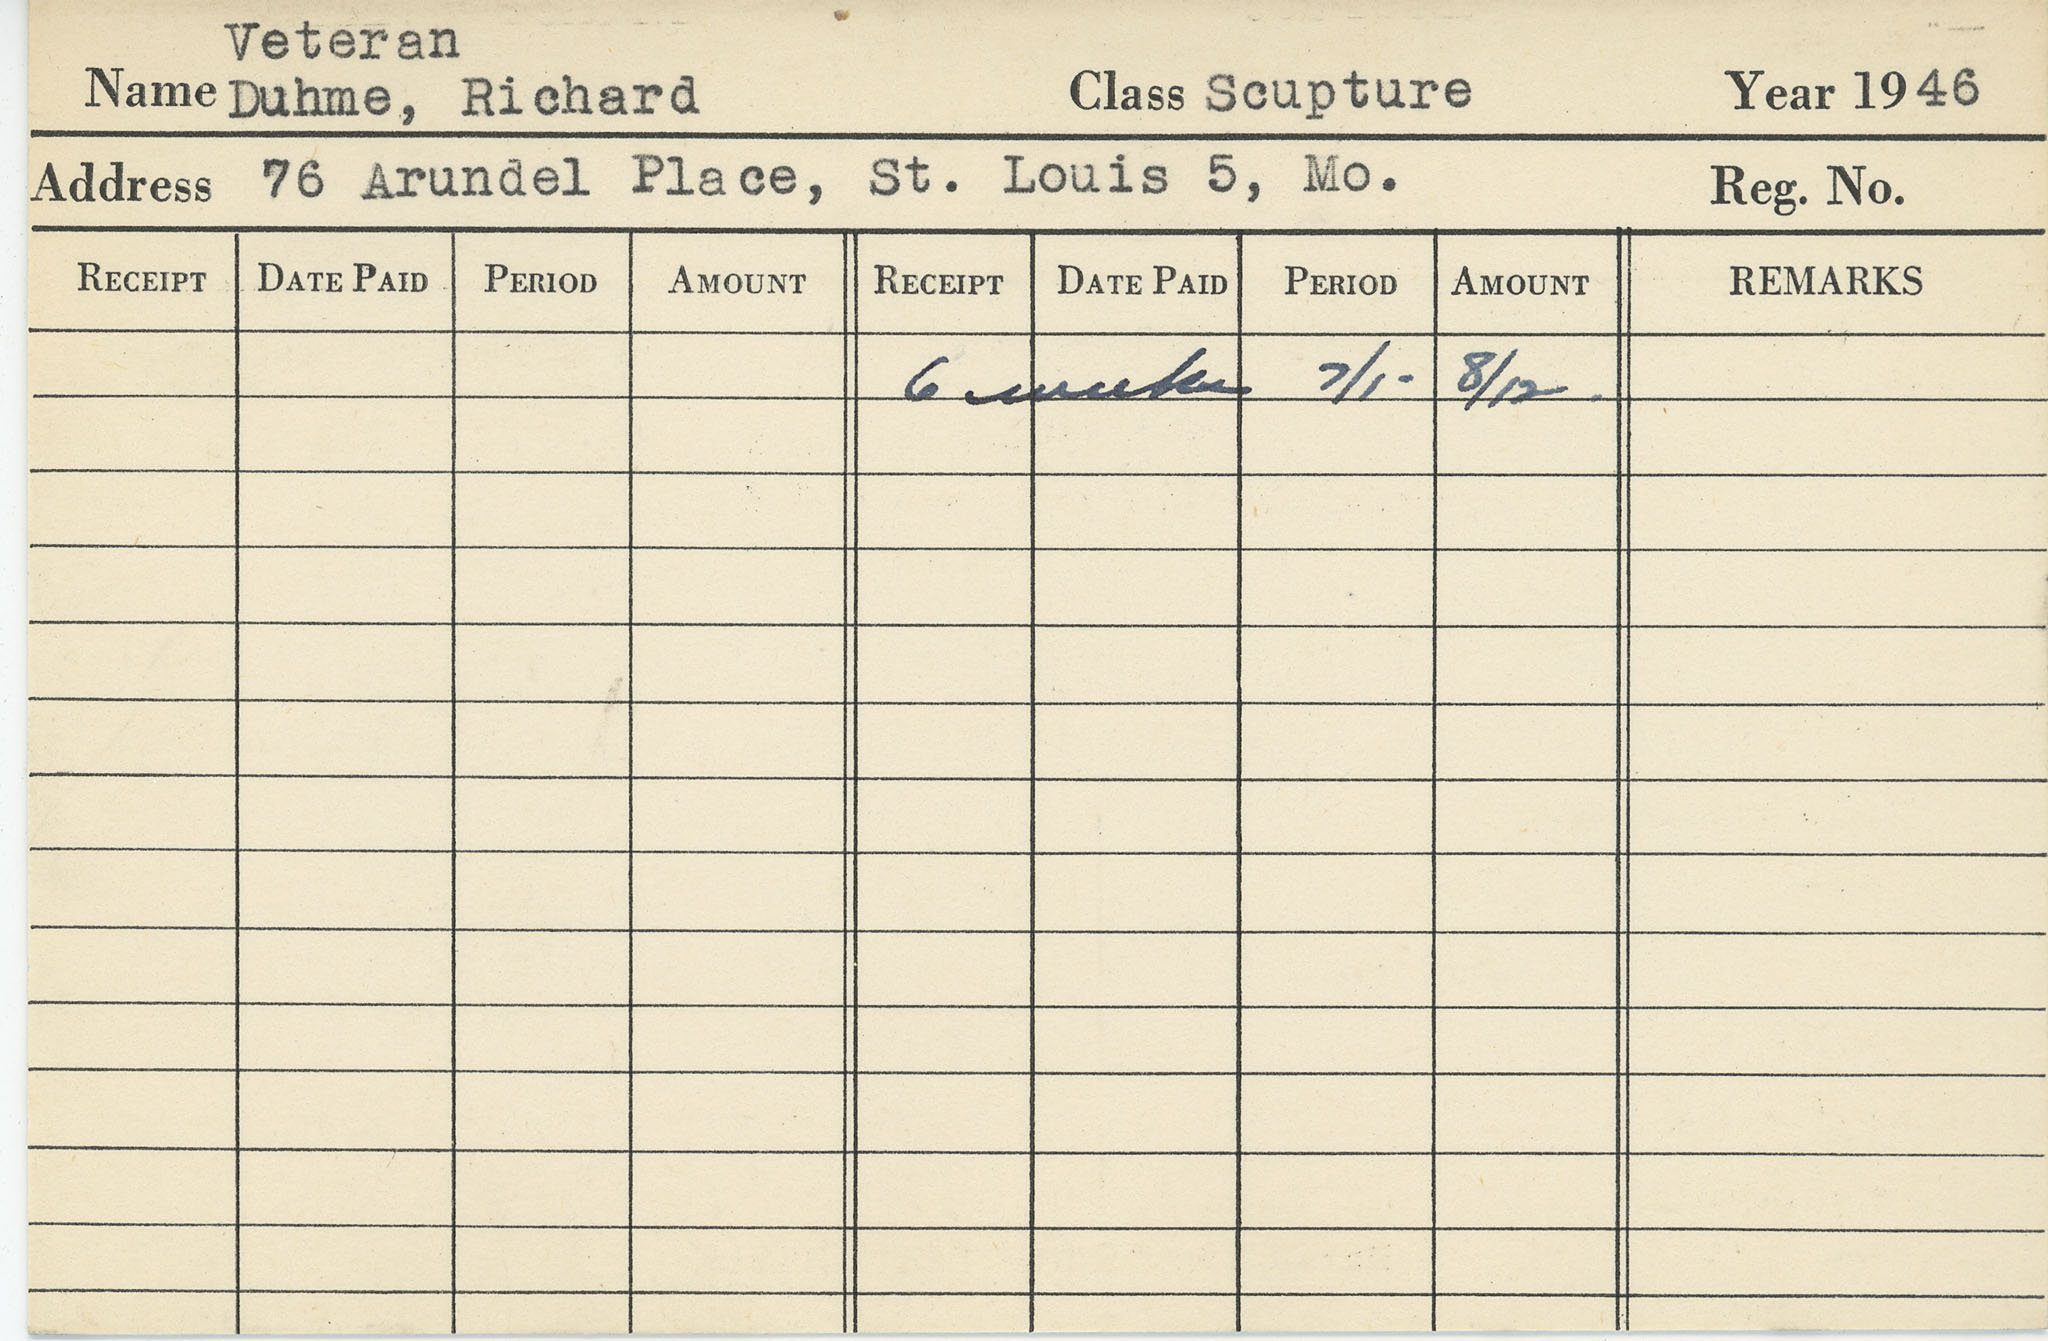 Veteran
Name Duhme, Richard Class Scupture Year 1946
Address 76 Arundel Place, St. Louis 5, Mo. Reg. No.
RECEIPT DATE PAID PERIOD AMOUNT RECEIPT DATE PAID PERIOD AMOUNT REMARKS
6 weeks 7/1- 8/12.